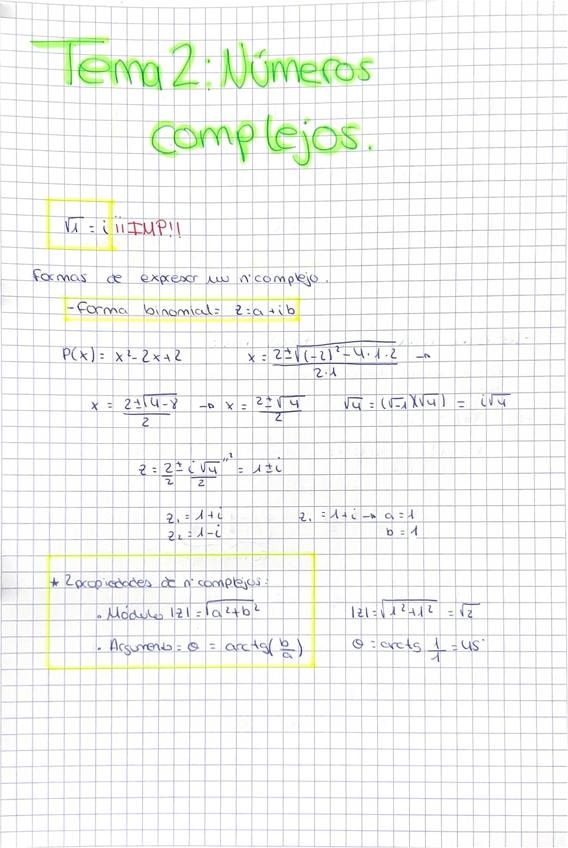 Tema 2: Números
complejos.
√1 = i ¡¡IMP!!
Formas de expresar un nº complejo.
- Forma binomial = z = a + ib
P(x) = x² - 2x + 2    x = (2 ± √((-2)² - 4·1·2)) / (2·1) →
x = (2 ± √(4-8)) / 2 → x = (2 ± √4) / 2    √4 = (√-1)(√4) = i√4
z = 2/2 ± i√4/2 "² = 1 ± i
z₁ = 1 + i    z₁ = 1 + i → a = 1
z₂ = 1 - i    b = 1
* 2 propiedades de nº complejos:
• Módulo |z| = √(a² + b²)    |z| = √(1² + 1²) = √2
• Argumento = θ = arctg(b/a)    θ = arctg 1/1 = 45°